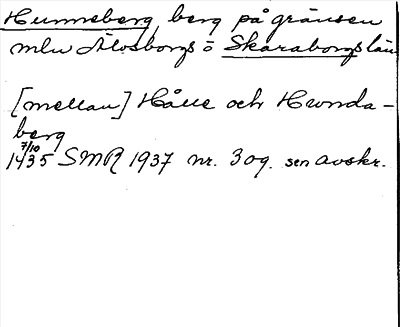 Hunneberg, berg på gränsen
mln Älvsborgs o Skaraborgs län
[mellan] Hålle och Hunda-
berg
7/10
1435 SMR 1937 nr. 309. sen avskr.